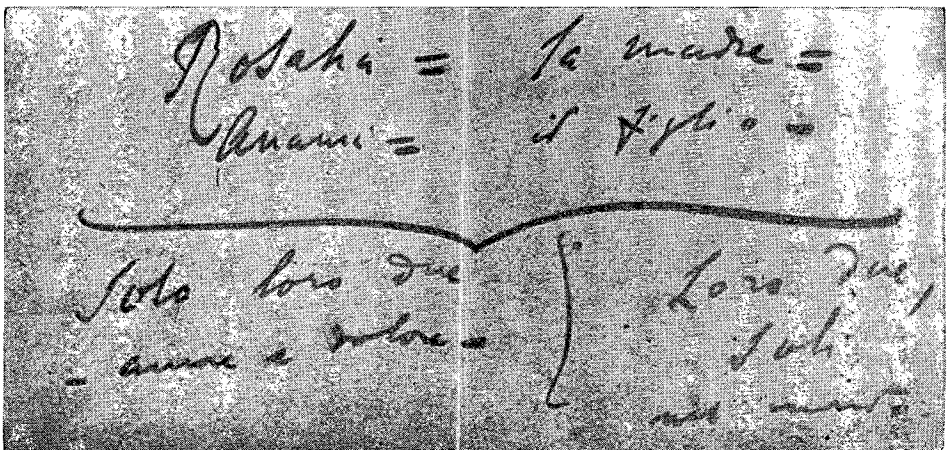 Rosalia = la madre =
= il figlio -
Solo loro due
- amore e dolore -
Loro due,
soli
nel mondo.